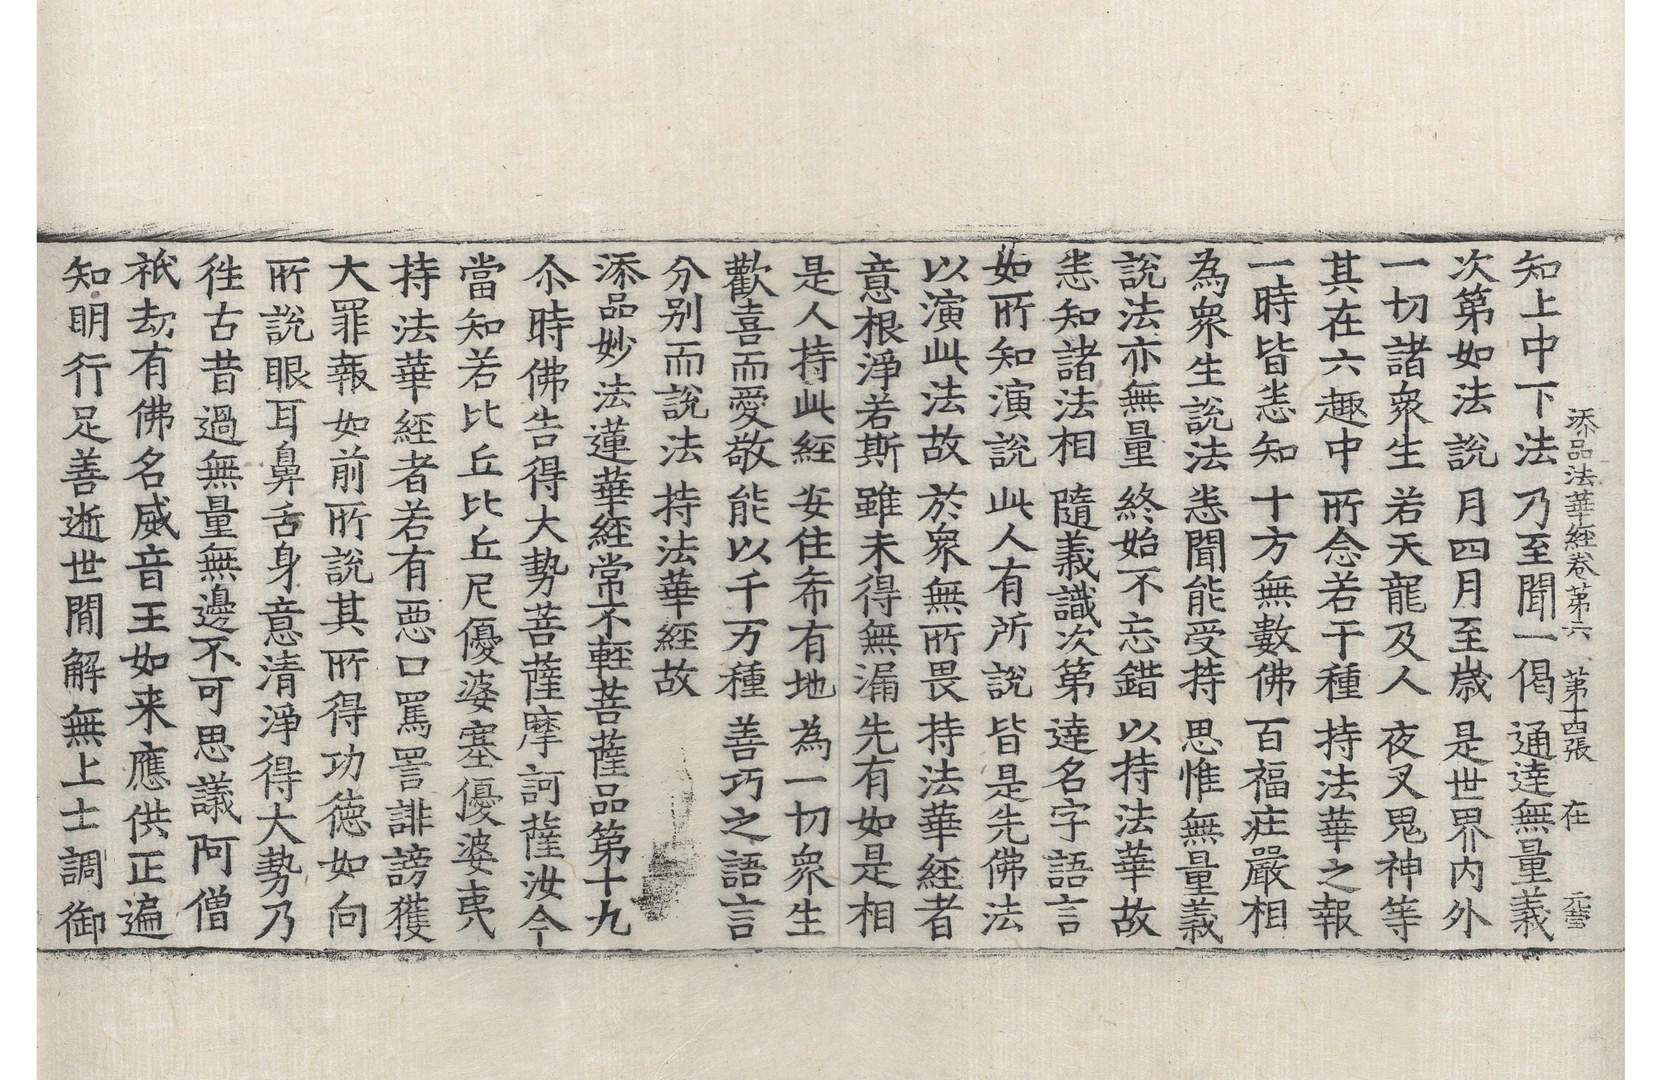 添品法華經卷第六　第十四張　在
知上中下法　乃至聞一偈　通達無量義
次第如法說　月四月至歲　是世界内外
一切諸衆生　若天龍及人　夜叉鬼神等
其在六趣中　所念若干種　持法華之報
一時皆悉知　十方無數佛　百福庄嚴相
為衆生說法　悉聞能受持　思惟無量義
說法亦無量　終始不忘錯　以持法華故
悉知諸法相　隨義識次第　達名字語言
如所知演說　此人有所說　皆是先佛法
以演此法故　於衆無所畏　持法華經者
意根淨若斯　雖未得無漏　先有如是相
是人持此經　安住希有地　為一切衆生
歡喜而愛敬　能以千万種　善巧之語言
分别而說法　持法華經故
添品妙法蓮華經常不輕菩薩品第十九
尒時佛告得大勢菩薩摩訶薩汝今
當知若比丘比丘尼優婆塞優婆夷
持法華經者若有惡口罵詈誹謗獲
大罪報如前所說其所得功德如向
所說眼耳鼻舌身意清淨得大勢乃
徃古昔過無量無邊不可思議阿僧
祇劫有佛名威音王如来應供正遍
知明行足善逝世間解無上士調御